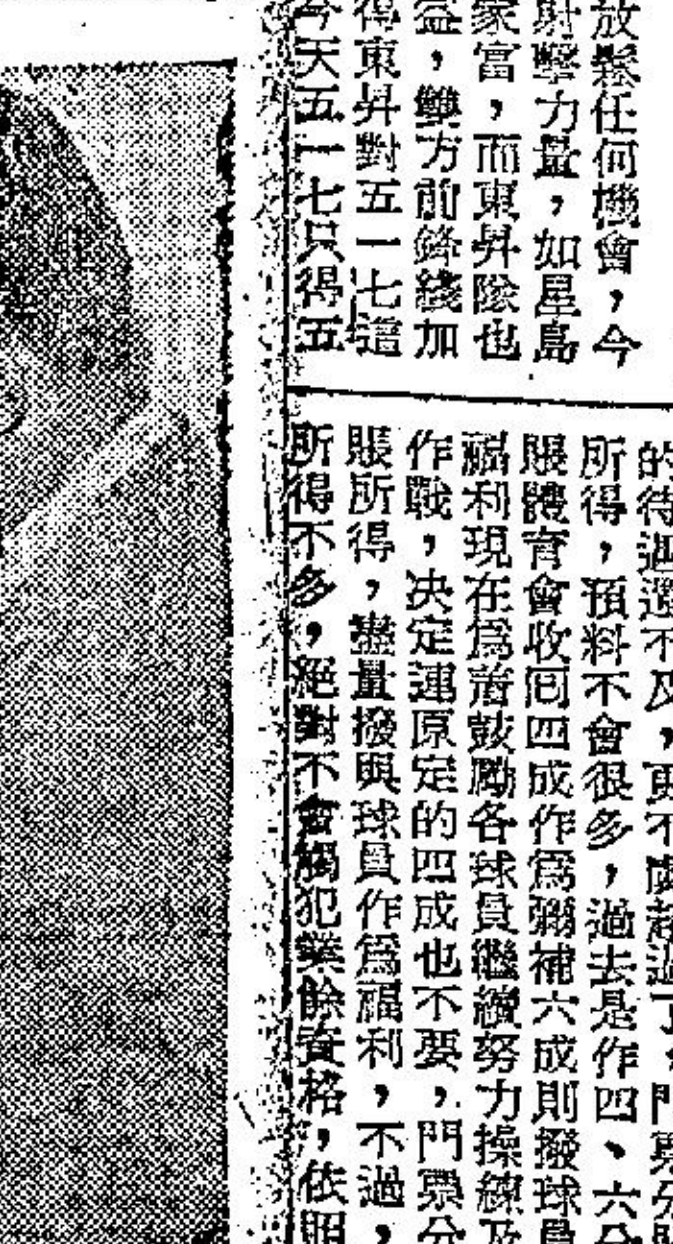 放鬆任何機會，今
射擊力量，如星島
家富，而東昇隊也
益，雙方前鋒綫加
得東昇對五一七這
今天五一七只得五
的待遇還不及，更不
所得，預料不會很多，過去是作四、六分
賬體育會收回四成作爲彌補六成則撥球員
福利現在爲着鼓勵各球員繼續努力操練及
作戰，决定連原定的四成也不要，門票分
賬所得，盡量撥與球員作爲福利，不過，
所得不多，絕對不會觸犯業餘資格，依照